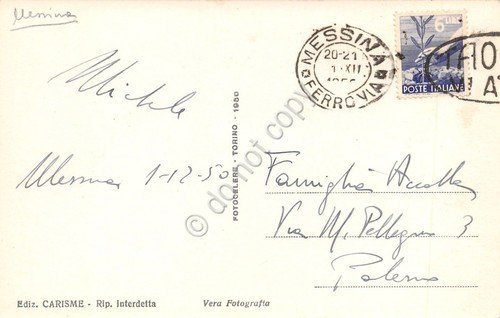 Messina
MESSINA
20-21
1·XII
FERROVIA
6 LIRE
POSTE ITALIANE
Michele
Messina 1-12-50
FOTOCELERE · TORINO · 1950
do not copy
Famiglia
Via M. Pellegrino 3
Palermo
Ediz. CARISME - Rip. Interdetta
Vera Fotografia